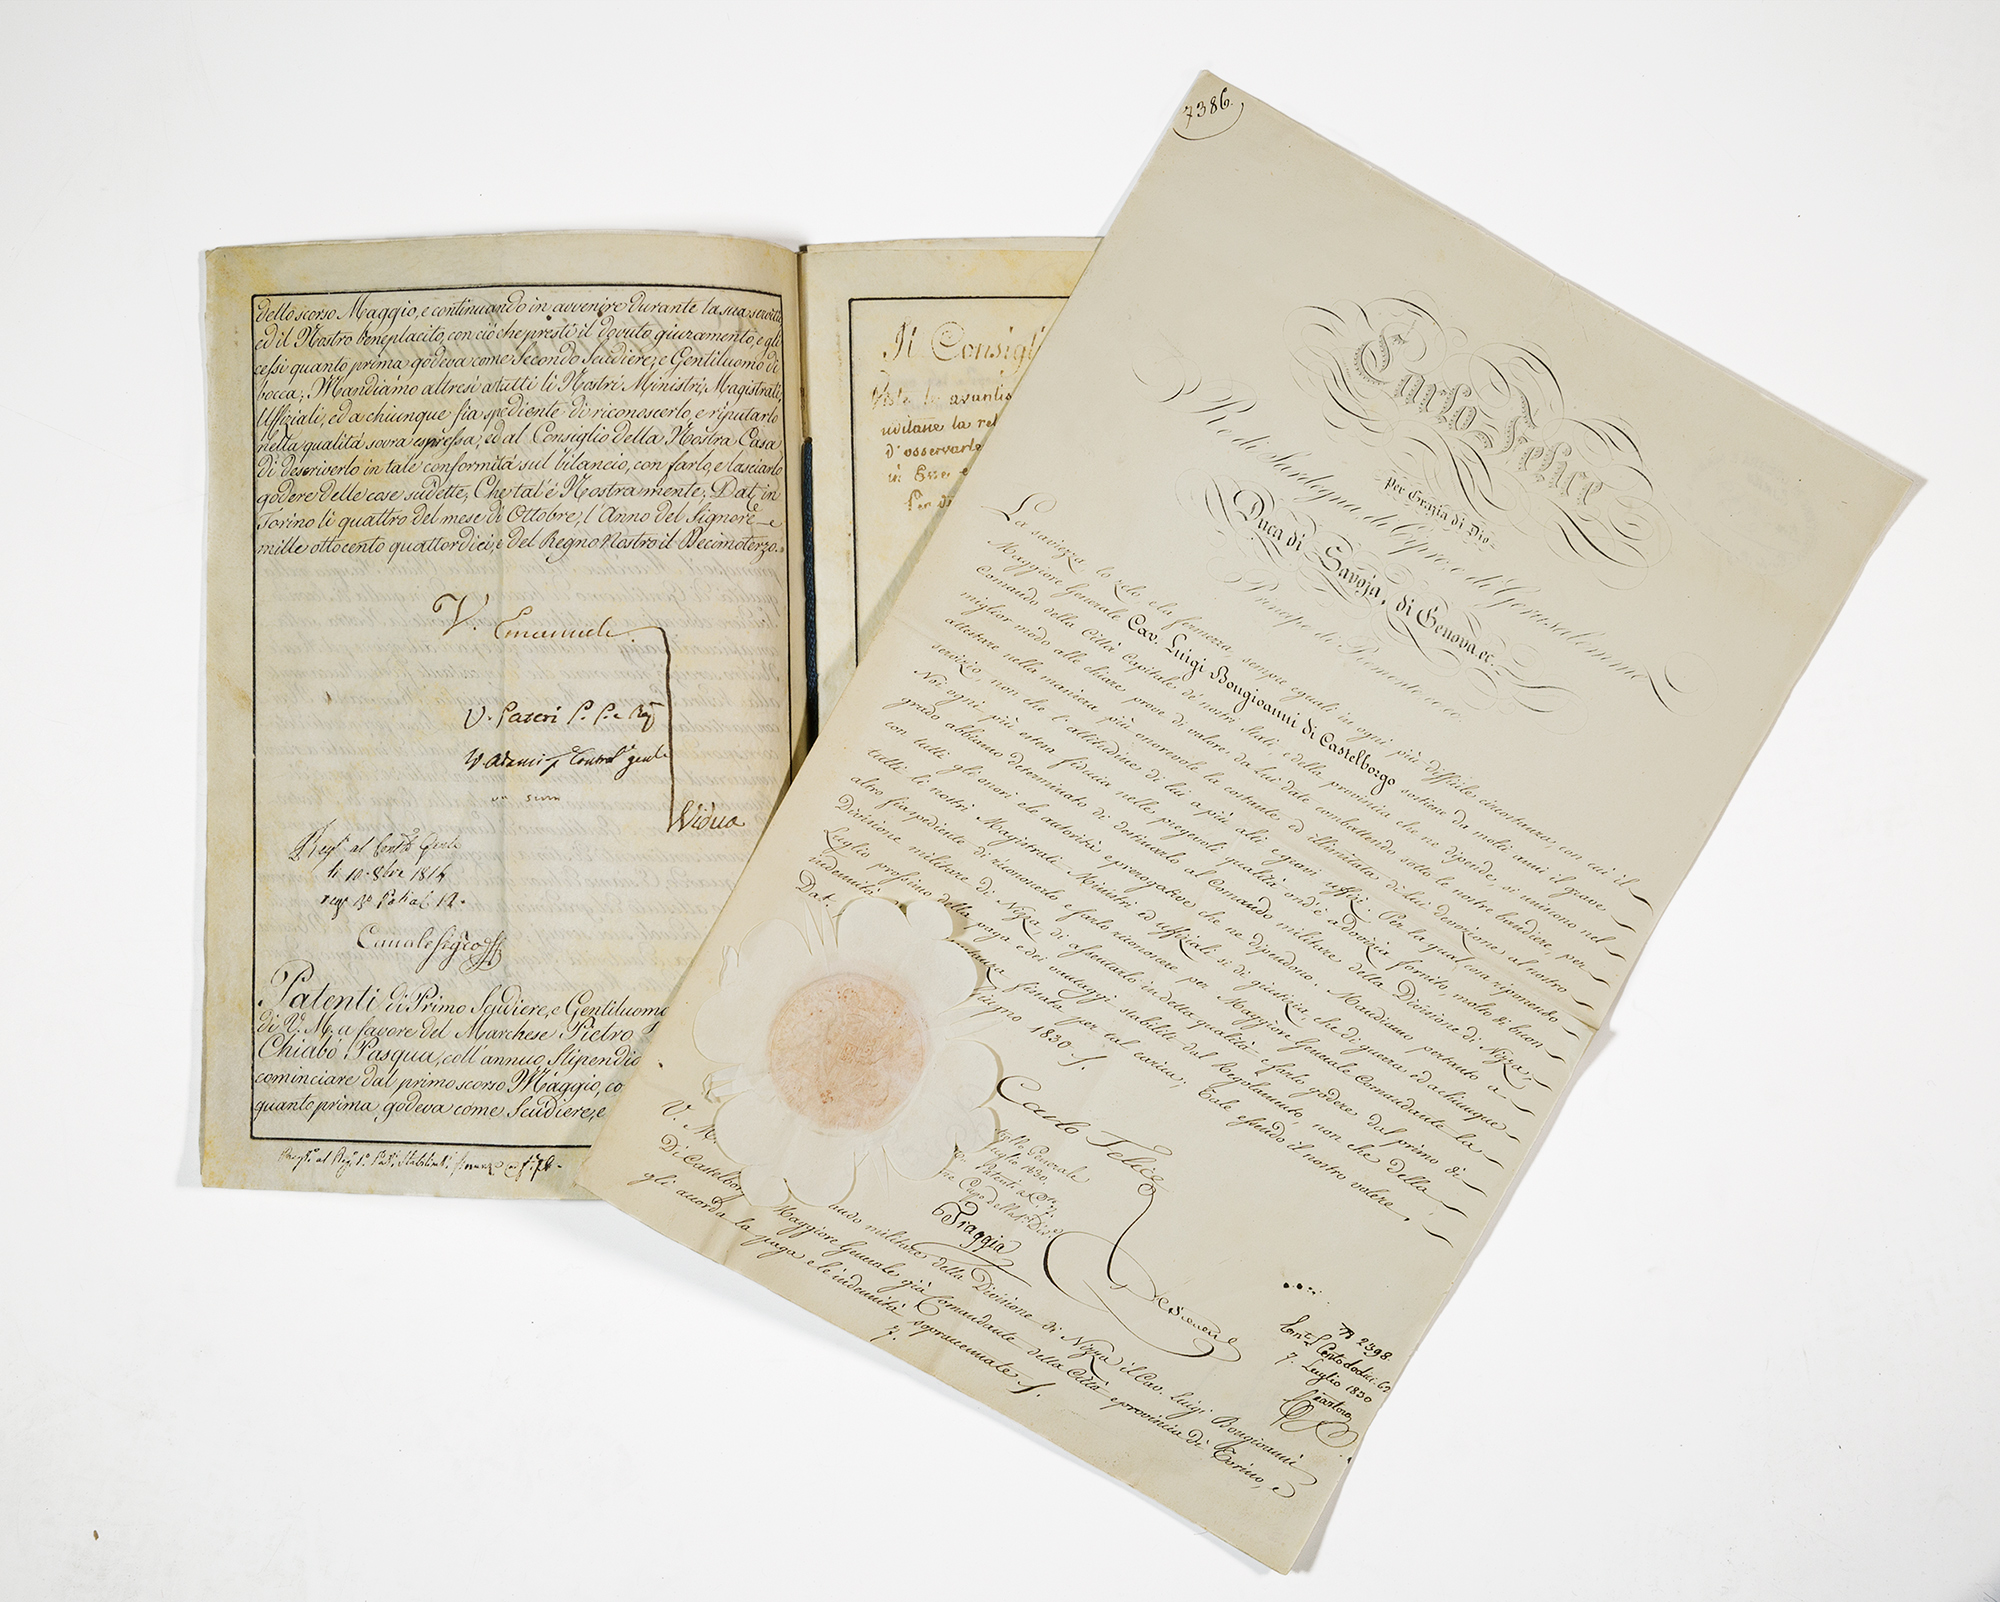 dello scorso Maggio, e continuando in avvenire durante la sua servitù
ed il Nostro beneplacito, con ciò che presti il dovuto giuramento, e gli
cessi quanto prima godeva come Secondo Scudiere, e Gentiluomo di
bocca; Mandiamo altresì a tutti li Nostri Ministri, Magistrati,
Uffiziali, ed a chiunque fia spediente di riconoscerlo, e riputarlo
nella qualità sovra espressa, ed al Consiglio della Nostra Casa
di descriverlo in tale conformità sul bilancio, con farlo, e lasciarlo
godere delle cose sudette, Che tal'è Nostra mente, Dat. in
Torino li quattro del mese di Ottobre, l'Anno del Signore
mille ottocento quattordici, e del Regno Nostro il Decimoterzo.
V. Emanuele
V.
V. Adami
Vidua
li 10. 8bre 1814
Patenti di Primo Scudiere, e Gentiluomo
di V. M. a favore del Marchese Pietro
Chiabò Pasqua, coll'annuo Stipendio
cominciare dal primo scorso Maggio, co
quanto prima godeva come Scudiere, e
Il Consigl
Viste le avantis
uditane la rel
d'osservarle
7386.
Carlo Felice
per Grazia di Dio
Re di Sardegna, di Cipro, e di Gerusalemme
Duca di Savoja, di Genova ec.
Principe di Piemonte ec. ec.
La saviezza, lo zelo e la fermezza, sempre eguali in ogni più difficile circostanza, con cui il
Maggiore Generale Cav. Luigi Bongioanni di Castelborgo sostiene da molti anni il grave
Comando della Città Capitale de' nostri Stati, e della provincia che ne dipende, si uniscono nel
miglior modo alle chiare prove di valore, da Lui date combattendo sotto le nostre bandiere, per
attestare nella maniera più onorevole la costante ed illimitata di lui devozione al nostro
servizio, non che l'attitudine di lui a più alti e gravi uffizi. Per la qual cosa riponendo
Noi ogni più estesa fiducia nelle pregevoli qualità ond'è a dovizia fornito, molto di buon
grado abbiamo determinato di destinarlo al Comando militare della Divisione di Nizza
con tutti gli onori ed autorità e prerogative che ne dipendono. Mandiamo pertanto a
tutti li nostri Magistrati Ministri ed uffiziali sì di giustizia, che di guerra ed a chiunque
altro fia spediente di riconoscerlo e farlo riconoscere per Maggiore Generale Comandante la
Divisione militare di Nizza, di assentarlo in detta qualità e farlo godere dal primo di
Luglio prossimo della paga e dei vantaggi stabiliti dal Regolamento, non che della
indennità fissata per tal carica; Tale essendo il nostro volere.
Dat. Giugno 1830
Carlo Felice
Generale
Luglio 1830.
Piaggia
V. M. ando militare della Divisione di Nizza il Cav. Luigi Bongioanni
Di Castelborg Maggiore Generale già Comandante della Città e provincia di Torino, e
gli accorda la paga e le indennità sopracennate
N 2398
7. Luglio 1830